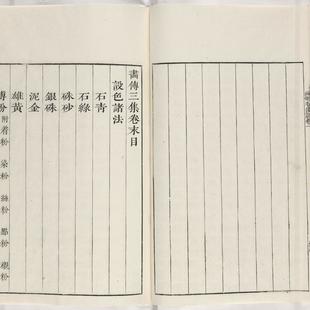 畫傳三集卷末目
設色諸法
石青
石綠
硃砂
銀硃
泥金
雄黃
傅粉 附 着粉 染粉 絲粉 點粉 襯粉